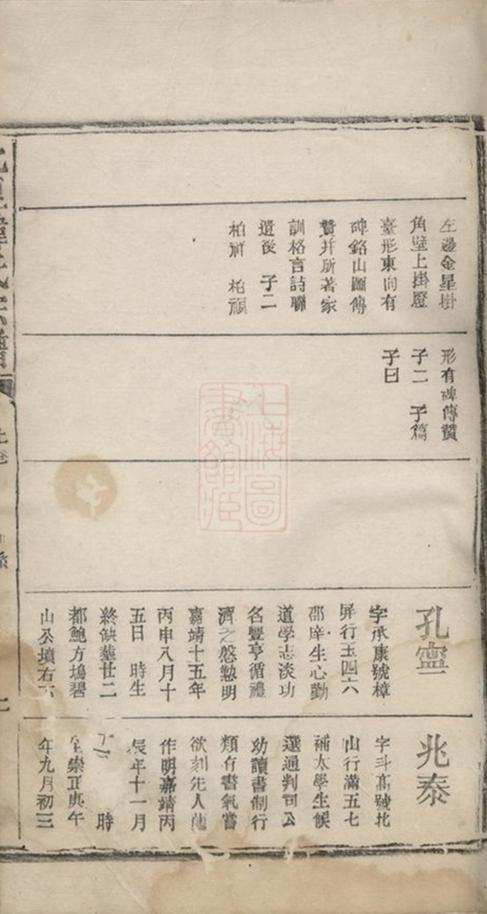 左邊金星掛
角壁上掛燈
臺形東向有
碑銘山圖傳
贊并所著家
訓格言詩聯
遺後 子二
柏 柏
形有碑傳贊
子二 子篇
子曰
孔寧
字承康號樟
屏行玉四六
邵庠生心勤
道學志淡功
名豐亨循禮
濟之慇懃明
嘉靖十五年
丙申八月十
五日 時生
終缺葬廿二
都鮑方塢碧
山公墳右
兆泰
字斗高號北
山行滿五七
補太學生候
選通判司公
幼讀書制行
類有書氣嘗
欲刻先人
作明嘉靖丙
辰年十一月
時
崇正庚午
年九月初三